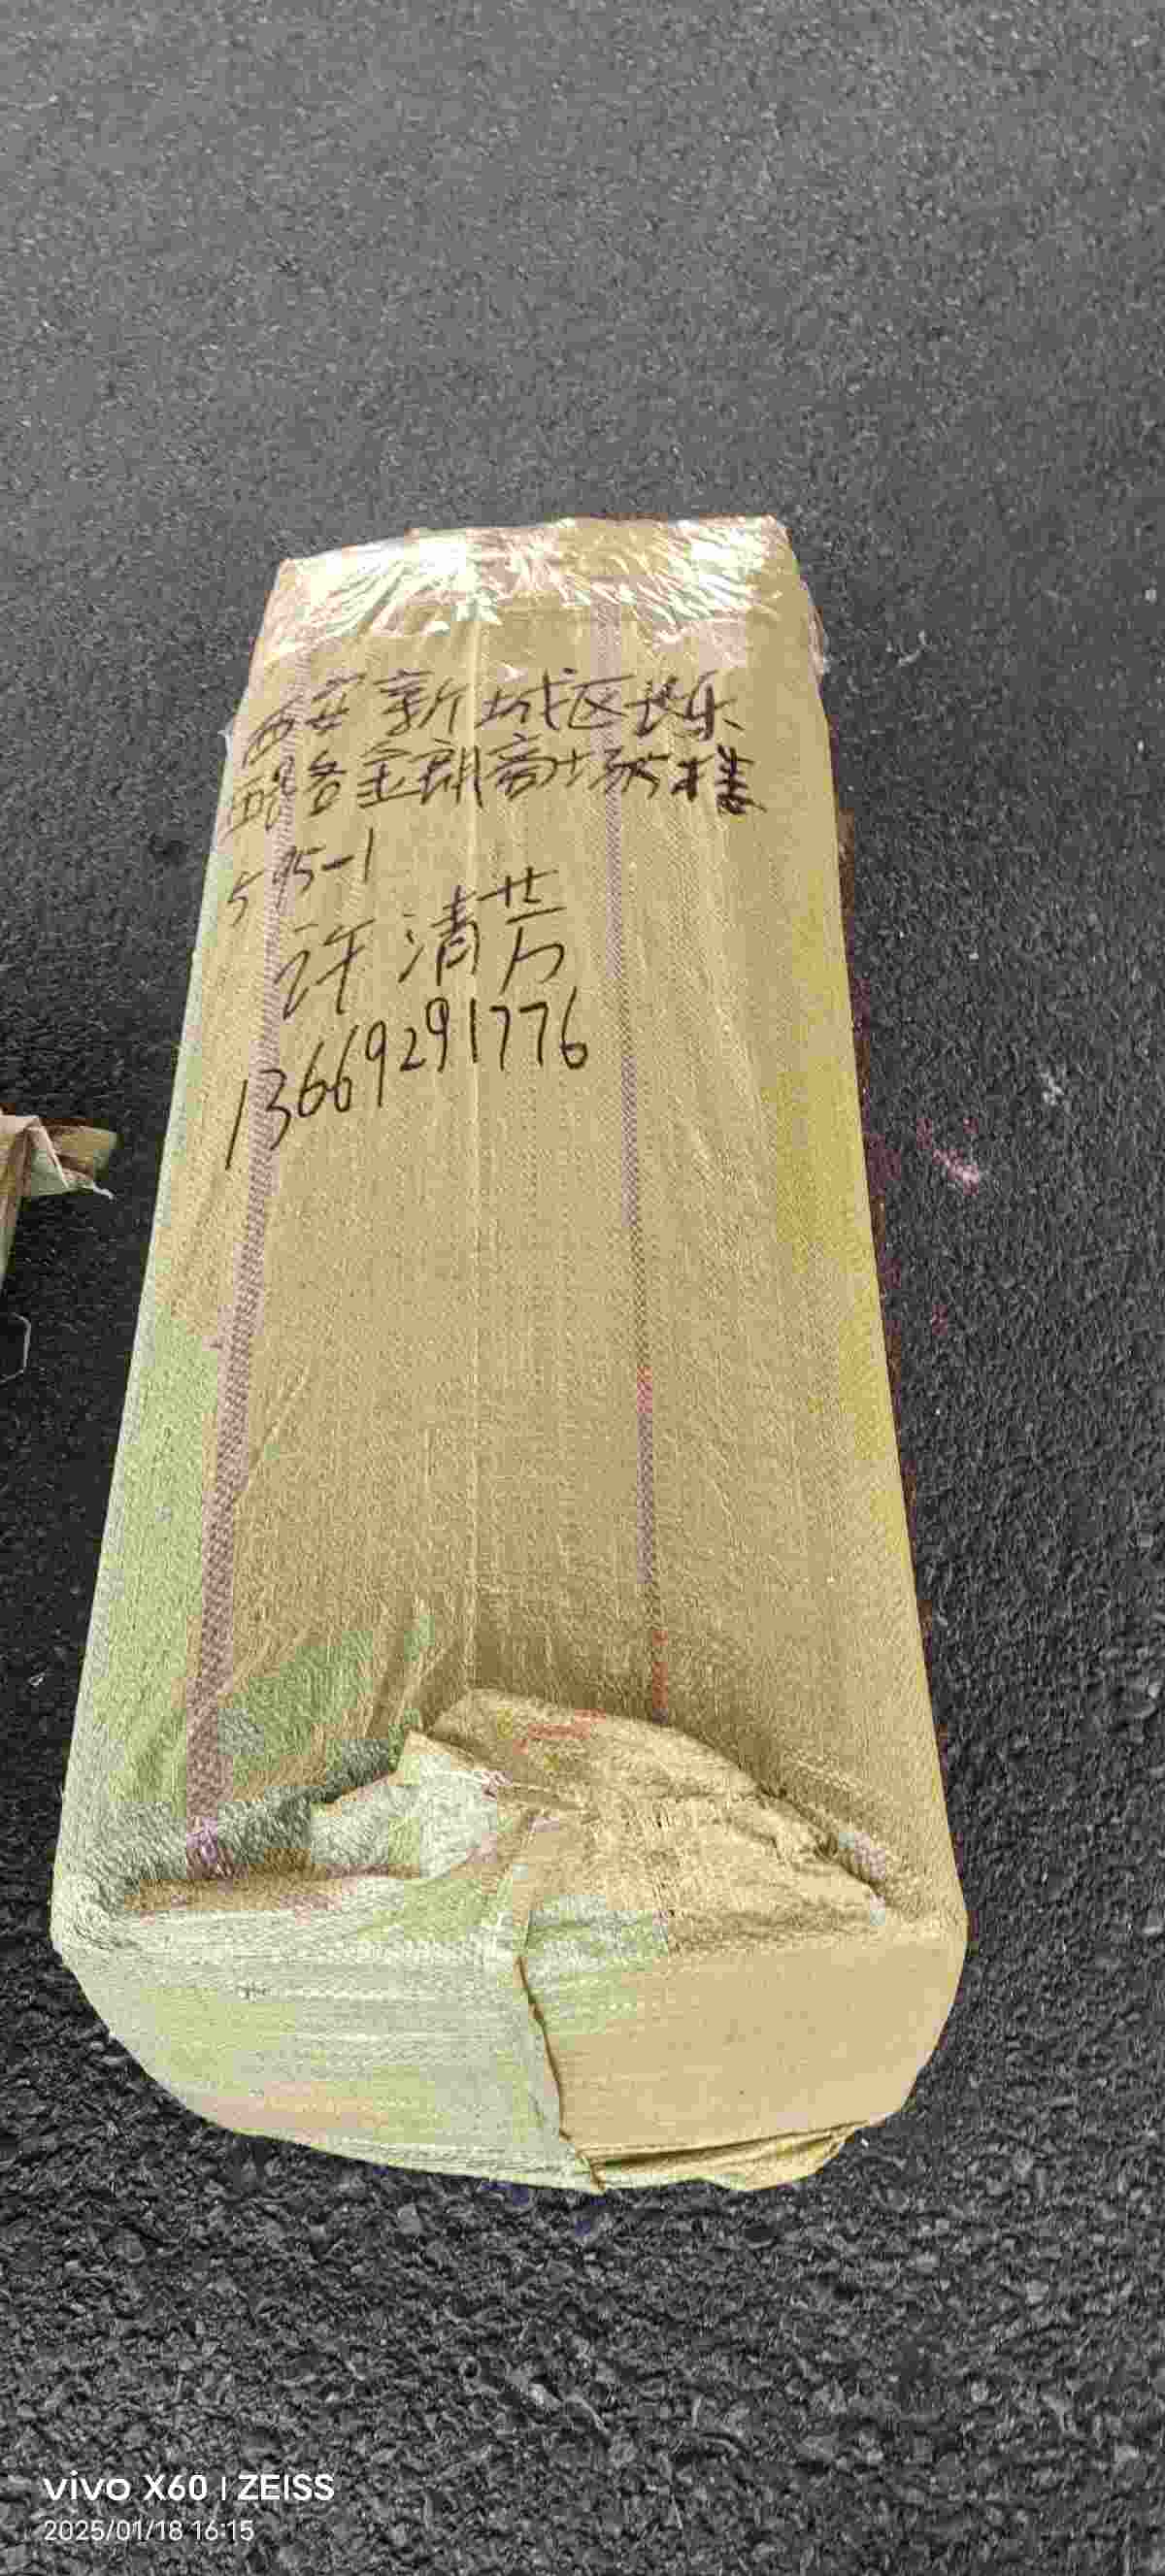 西安新城区长乐
路金朗商场楼
595-1
许清芳
13669291776
vivo X60 | ZEISS
2025/01/18 16:15